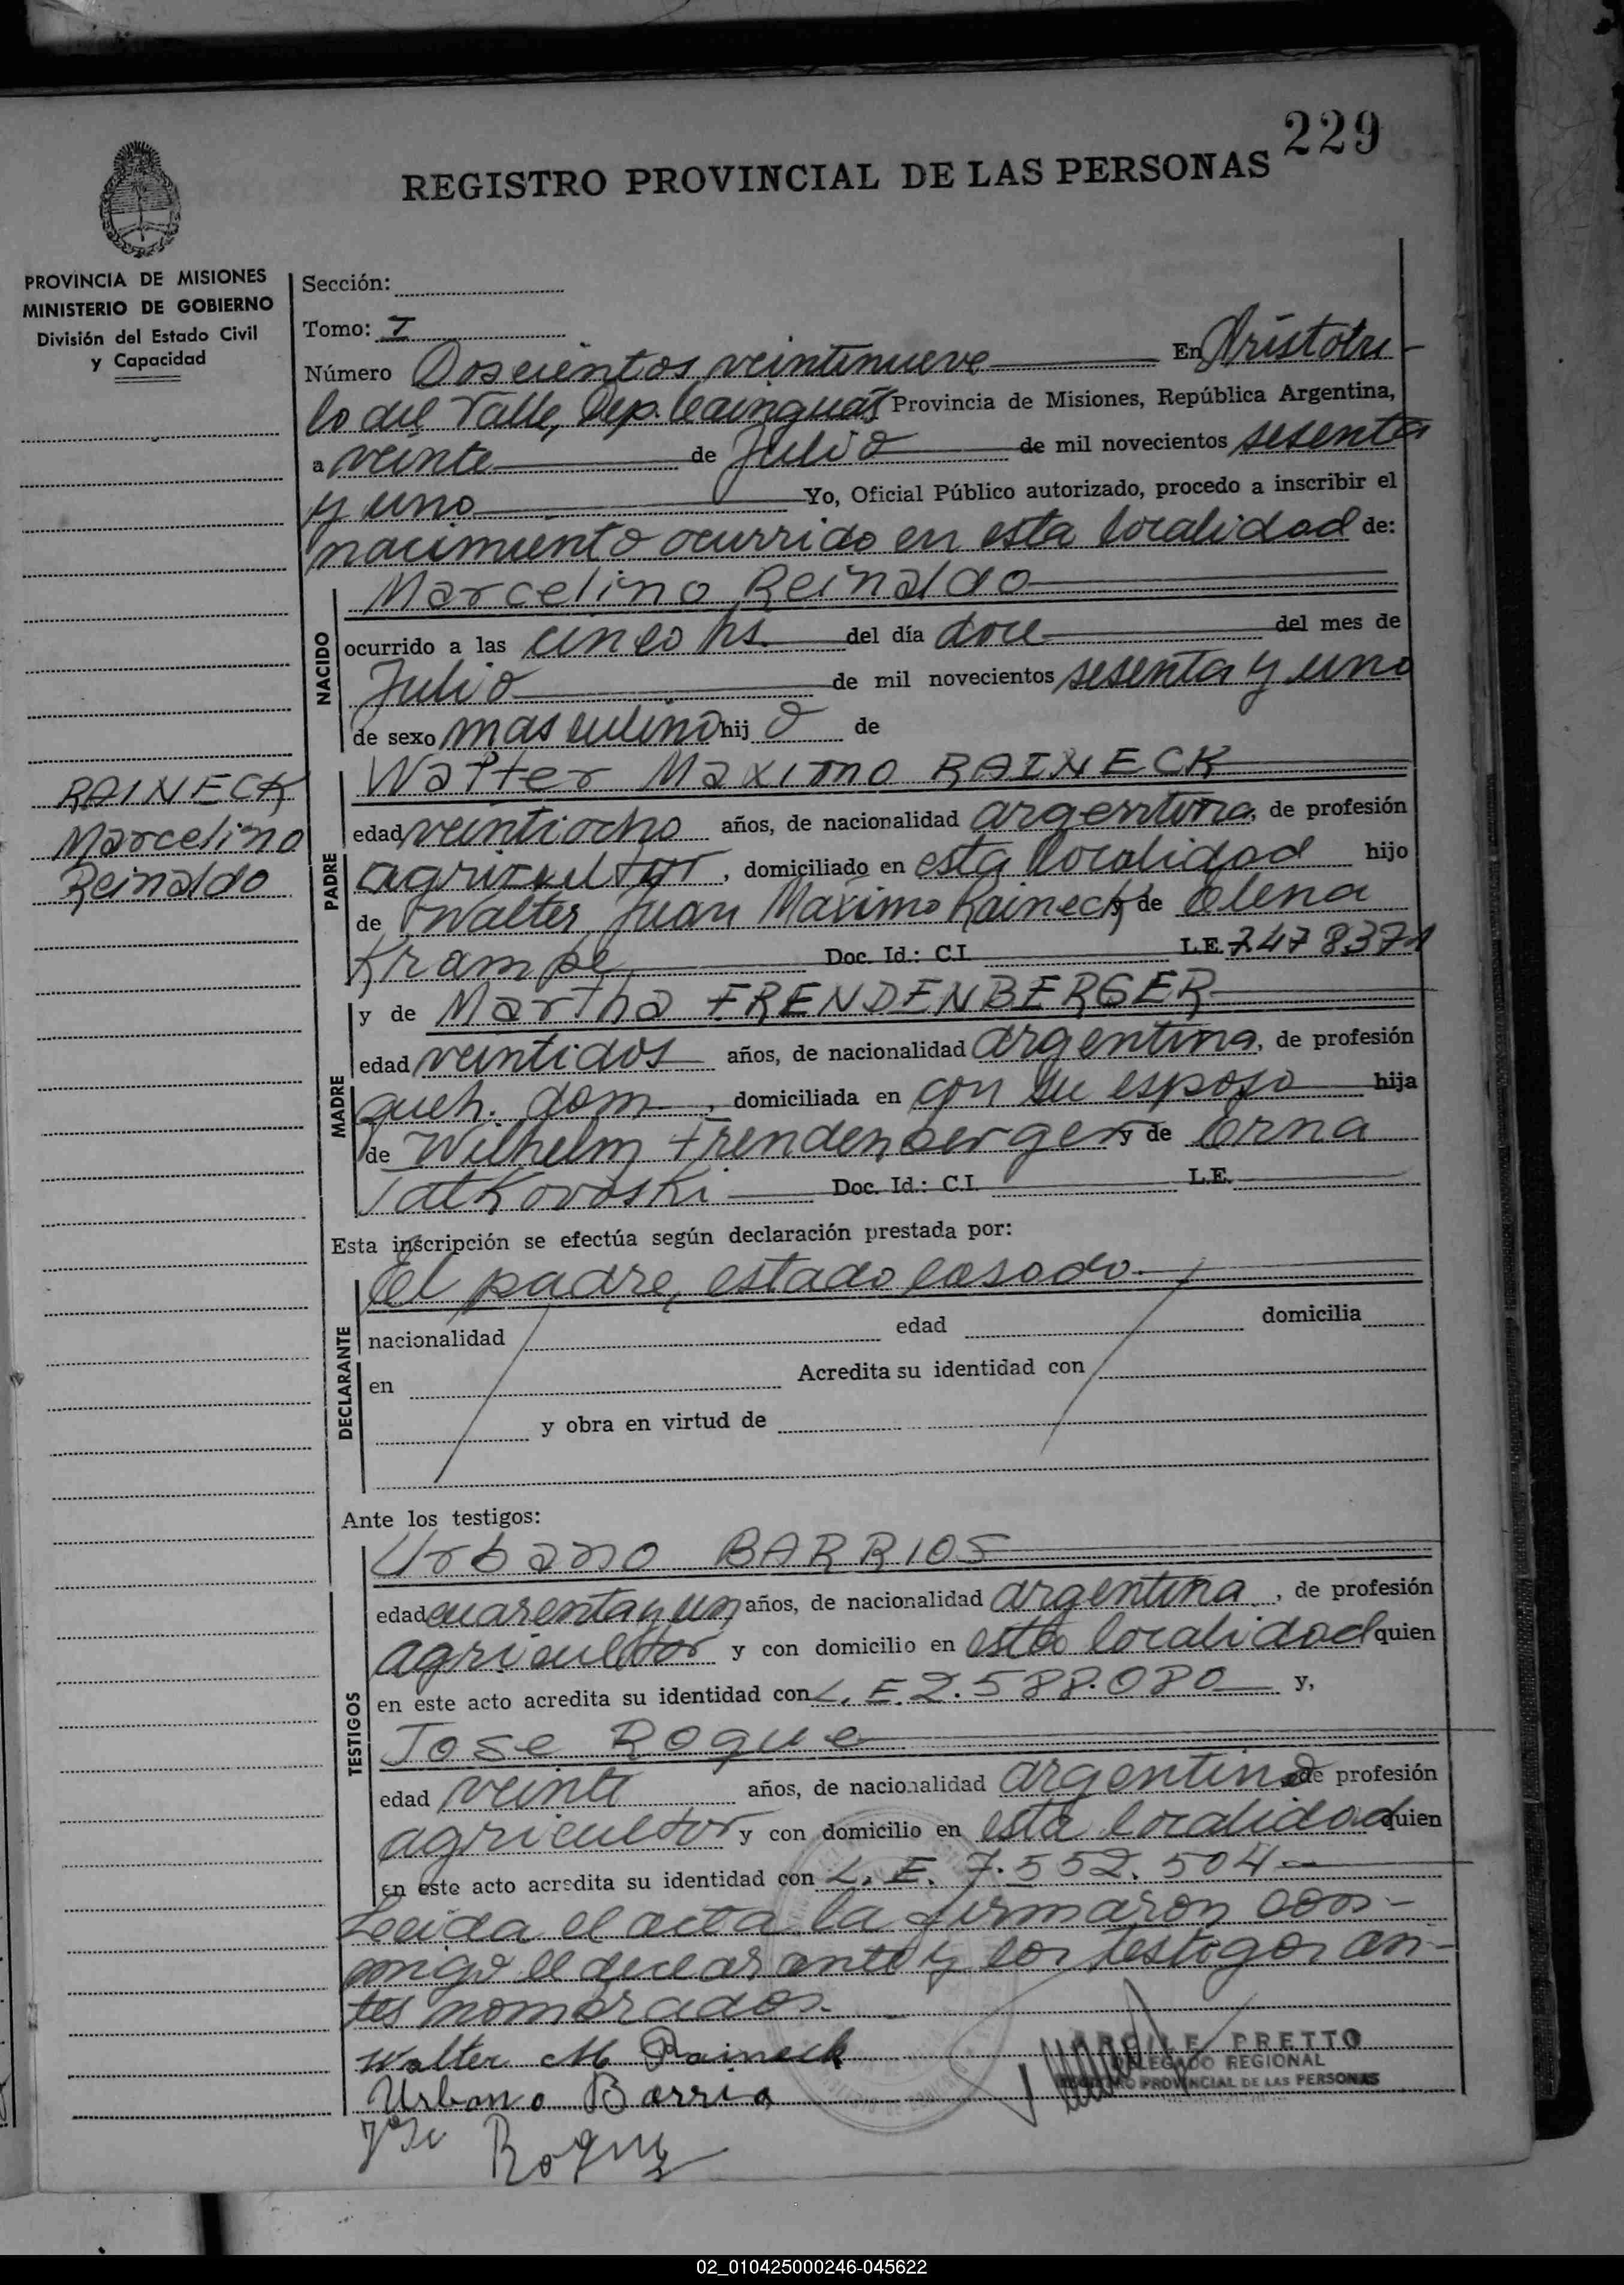 229
REGISTRO PROVINCIAL DE LAS PERSONAS
PROVINCIA DE MISIONES
MINISTERIO DE GOBIERNO
División del Estado Civil
y Capacidad
Sección:
Tomo: I
Número Doscientos veintinueve En Aristobu
lo del Valle, Dep. Cainguás Provincia de Misiones, República Argentina,
a veinte de Julio de mil novecientos sesenta
y uno Yo, Oficial Público autorizado, procedo a inscribir el
nacimiento ocurrido en esta localidad de:
NACIDO
Marcelino Reinaldo
ocurrido a las cinco hs. del día doce del mes de
Julio de mil novecientos sesenta y uno
de sexo masculino hij o de
RAINECK
Marcelino
Reinaldo
PADRE
Walter Maximo RAINECK
edad veintiocho años, de nacionalidad argentina, de profesión
agricultor, domiciliado en esta localidad hijo
de Walter Juan Maximo Raineck y de Elena
Krampe Doc. Id.: C.I. L.E. 7.478371
MADRE
y de Martha FRENDENBERGER
edad veintidos años, de nacionalidad argentina, de profesión
queh. dom., domiciliada en con su esposo hija
de Wilhelm Frendenberger y de Erna
Tatkovoski Doc. Id.: C.I. L.E.
Esta inscripción se efectúa según declaración prestada por:
DECLARANTE
El padre, estado casado
nacionalidad edad domicilia
en Acredita su identidad con
y obra en virtud de
Ante los testigos:
TESTIGOS
Urbano BARRIOS
edad cuarenta y un años, de nacionalidad argentina, de profesión
agricultor y con domicilio en esta localidad quien
en este acto acredita su identidad con L.E. 2.588.080 y,
Jose Roque
edad veinte años, de nacionalidad argentina de profesión
agricultor y con domicilio en esta localidad quien
en este acto acredita su identidad con L.E. 7.552.504
Leida el acta la firmaron con-
migo el declarante y los testigos an-
tes nombrados.
Walter M Raineck
Urbano Barrio
José Roque
PRETTO
DELEGADO REGIONAL
REGISTRO PROVINCIAL DE LAS PERSONAS
02_010425000246-045622